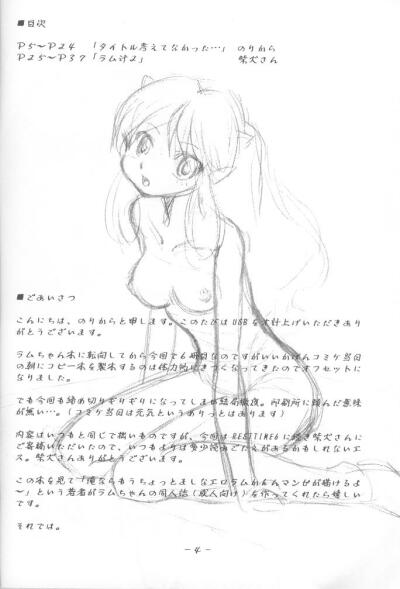 ■目次
P5〜P24 「タイトル考えてなかった…」 のりから
P25〜P37「ラム汁2」 柴犬さん
■ごあいさつ
こんにちは、のりからと申します。このたびはUGBをお計上げいただきあり
がとうございます。
ラムちゃん本に転向してから今回で6冊目なのですがいいかげんコミケ当日
の朝にコピー本を製本するのは体力的にきつくなってきたのでオフセット
になりました。
でも今回も締め切りギリギリになってしまが結局徹夜。印刷所に頼んだ意味
が無い…。(コミケ当日は元気というありっとはあります)
内容はいつもと同じで描いものですが、今回はRESTTIME6に続き柴犬さんに
ご寄稿いただいたので、いつもよりは多少読みごたえがあるかもしれないエ
ス。柴犬さんありがとうございます。
この本を見て「俺ならもうちょっとましなエロラムかんマンガが描けるよ
〜」という若者がラムちゃんの同人誌(成人向け)を作ってくれたら嬉しい
です。
それでは。
－4－